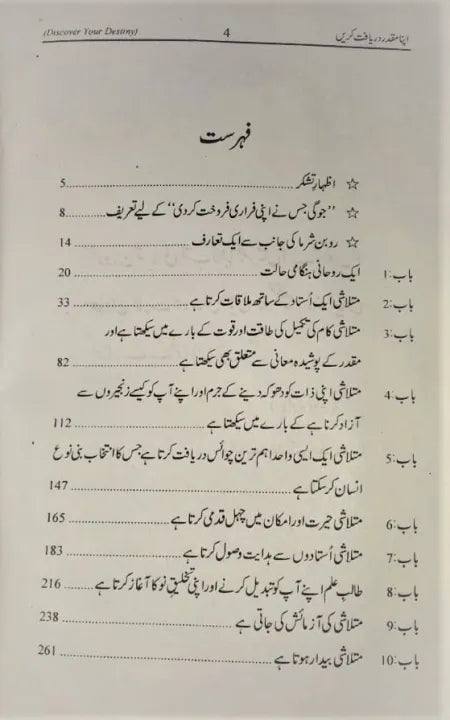 اپنا مقدر دریافت کریں 4 (Discover Your Destiny)
فہرست
☆ اظہارِ تشکر 5
☆ ”جوگی جس نے اپنی فراری فروخت کر دی“ کے لیے تعریف 8
☆ روبن شرما کی جانب سے ایک تعارف 14
باب:1 ایک روحانی ہنگامی حالت 20
باب:2 متلاشی ایک اُستاد کے ساتھ ملاقات کرتا ہے 33
باب:3 متلاشی کام کی تکمیل کی طاقت اور قوت کے بارے میں سیکھتا ہے اور
مقدر کے پوشیدہ معانی سے متعلق بھی سیکھتا ہے 82
باب:4 متلاشی اپنی ذات کو دھوکہ دینے کے جرم اور اپنے آپ کو کیسے زنجیروں سے
آزاد کرنا ہے کے بارے میں سیکھتا ہے 112
باب:5 متلاشی ایک ایسی واحد اہم ترین چوائس دریافت کرتا ہے جس کا انتخاب بنی نوع
انسان کر سکتا ہے 147
باب:6 متلاشی حیرت اور امکان میں چہل قدمی کرتا ہے 165
باب:7 متلاشی اُستادوں سے ہدایت وصول کرتا ہے 183
باب:8 طالب علم اپنے آپ کو تبدیل کرنے اور اپنی تخلیقِ نو کا آغاز کرتا ہے 216
باب:9 متلاشی کی آزمائش کی جاتی ہے 238
باب:10 متلاشی بیدار ہوتا ہے 261